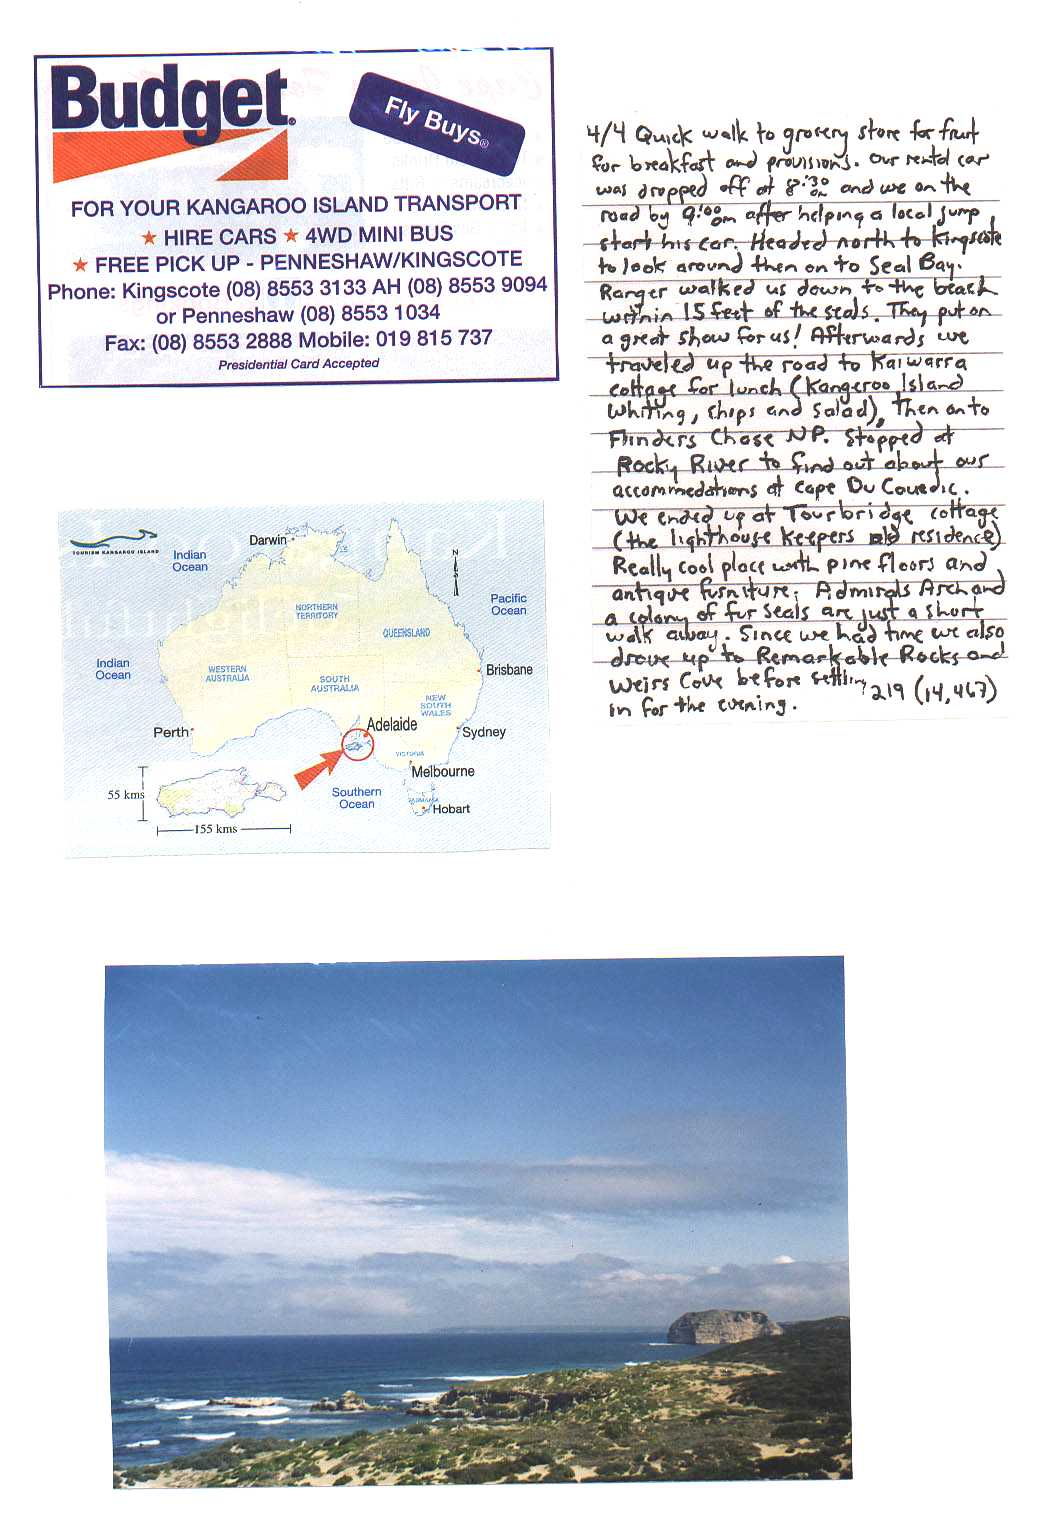 Budget®
Fly Buys®
FOR YOUR KANGAROO ISLAND TRANSPORT
★ HIRE CARS ★ 4WD MINI BUS
★ FREE PICK UP - PENNESHAW/KINGSCOTE
Phone: Kingscote (08) 8553 3133 AH (08) 8553 9094
or Penneshaw (08) 8553 1034
Fax: (08) 8553 2888 Mobile: 019 815 737
Presidential Card Accepted
4/4 Quick walk to grocery store for fruit
for breakfast and provisions. Our rental car
was dropped off at 8:30 am and we on the
road by 9:00 am after helping a local jump
start his car. Headed north to Kingscote
to look around then on to Seal Bay.
Ranger walked us down to the beach
within 15 feet of the seals. They put on
a great show for us! Afterwards we
traveled up the road to Kaiwarra
cottage for lunch (Kangeroo Island
Whiting, chips and salad), Then on to
Flinders Chase NP. Stopped at
Rocky River to find out about our
accommedations at Cape Du Couedic.
We ended up at Tourbridge cottage
(the lighthouse keepers old residence)
Really cool place with pine floors and
antique furniture. Admirals Arch and
a colony of fur seals are just a short
walk away. Since we had time we also
drove up to Remarkable Rocks and
Weirs Cove before settling
in for the evening. 219 (14,467)
TOURISM KANGAROO ISLAND
Darwin
Indian
Ocean
N
Pacific
Ocean
NORTHERN
TERRITORY
QUEENSLAND
Indian
Ocean
WESTERN
AUSTRALIA
SOUTH
AUSTRALIA
Brisbane
NEW
SOUTH
WALES
Perth
Adelaide
Sydney
VICTORIA
Melbourne
Southern
Ocean
TASMANIA
Hobart
55 kms
155 kms